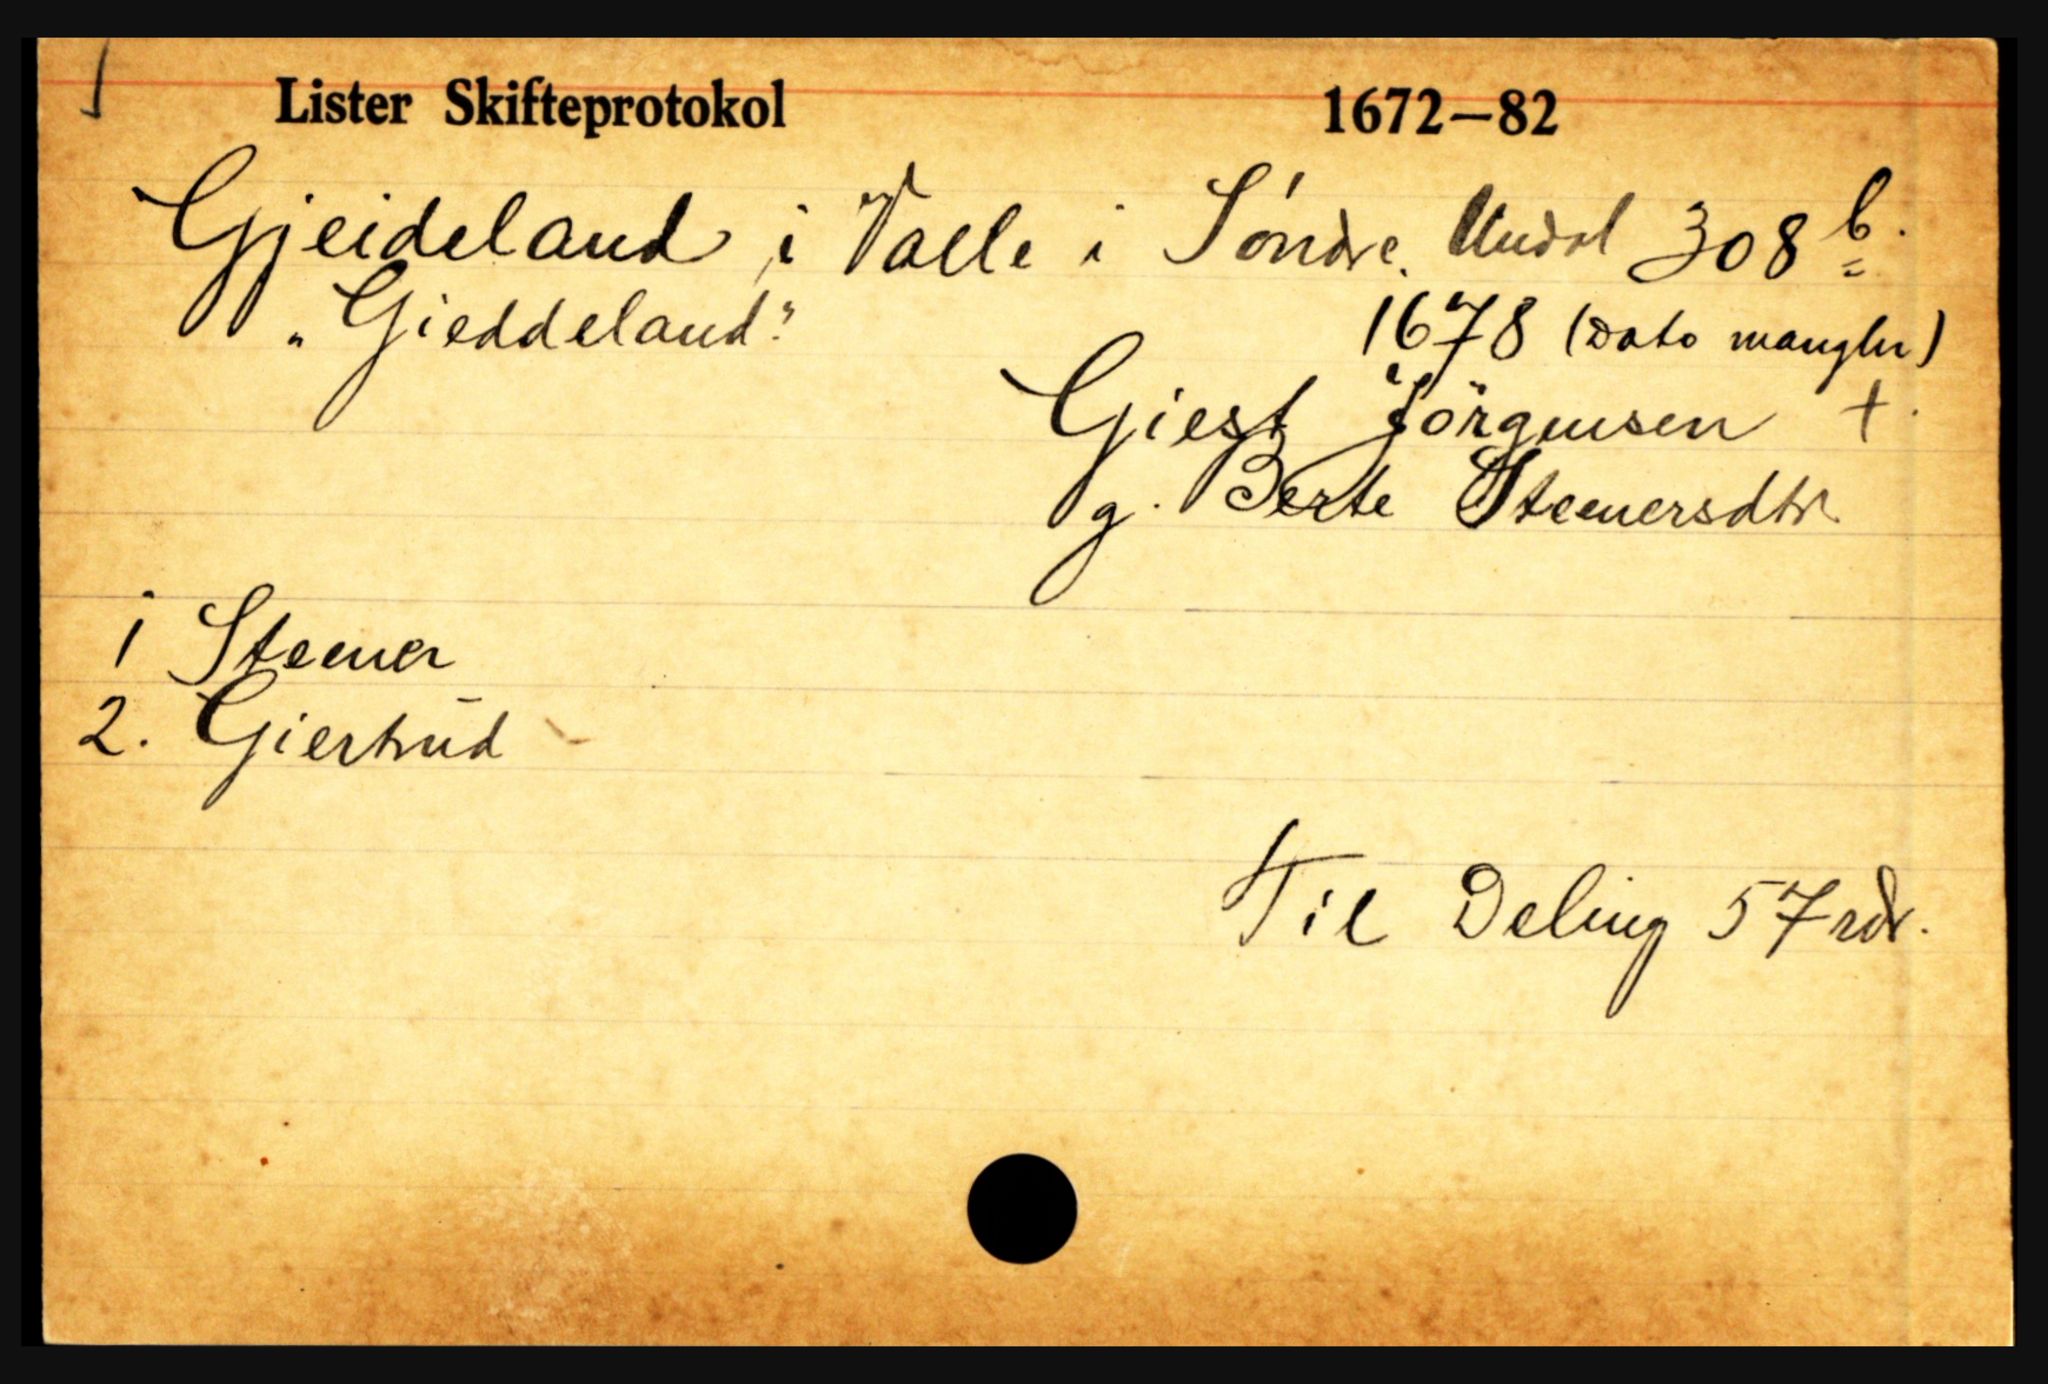 Lister Skifteprotokol 1672–82
Gjeideland i Valle i Söndre Undal 308 b.
"Gieddeland" 1678 (Dato mangler)
Giest Jörgensen +.
g. Berte Steenersdtr
1 Steener
2. Giertrud
Til Deling 57 rdr.